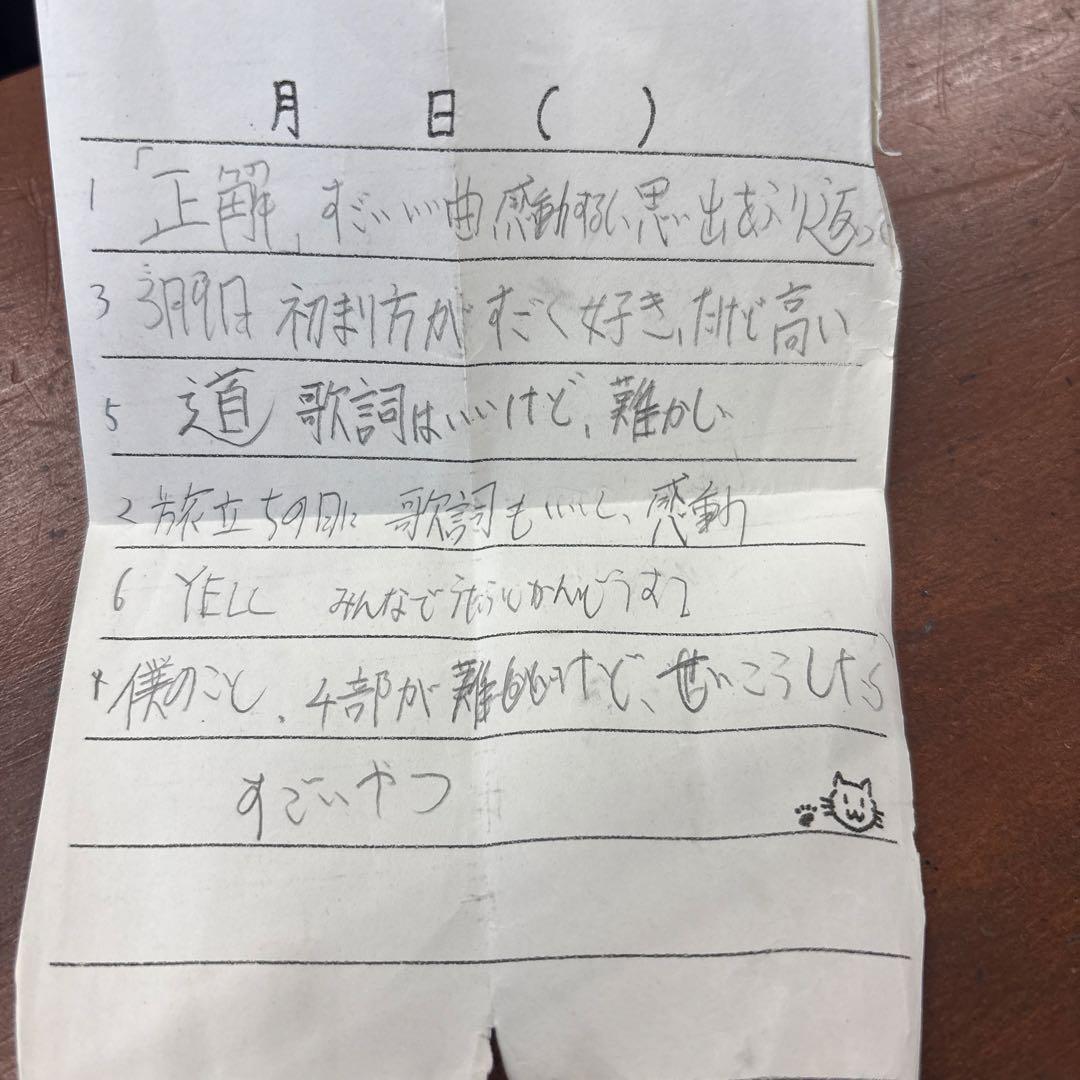 月 日 ( )
1 「正解」すごいいい曲感動するし思い出をふり返って
3 3月9日 初まり方がすごく好き、だけど高い
5 道 歌詞はいいけど、難かしい
2 旅立ちの日に 歌詞もいいし、感動
6 YELL みんなで
4 僕のこと、4部が難しいけど、せいこうしたら
すごいやつ